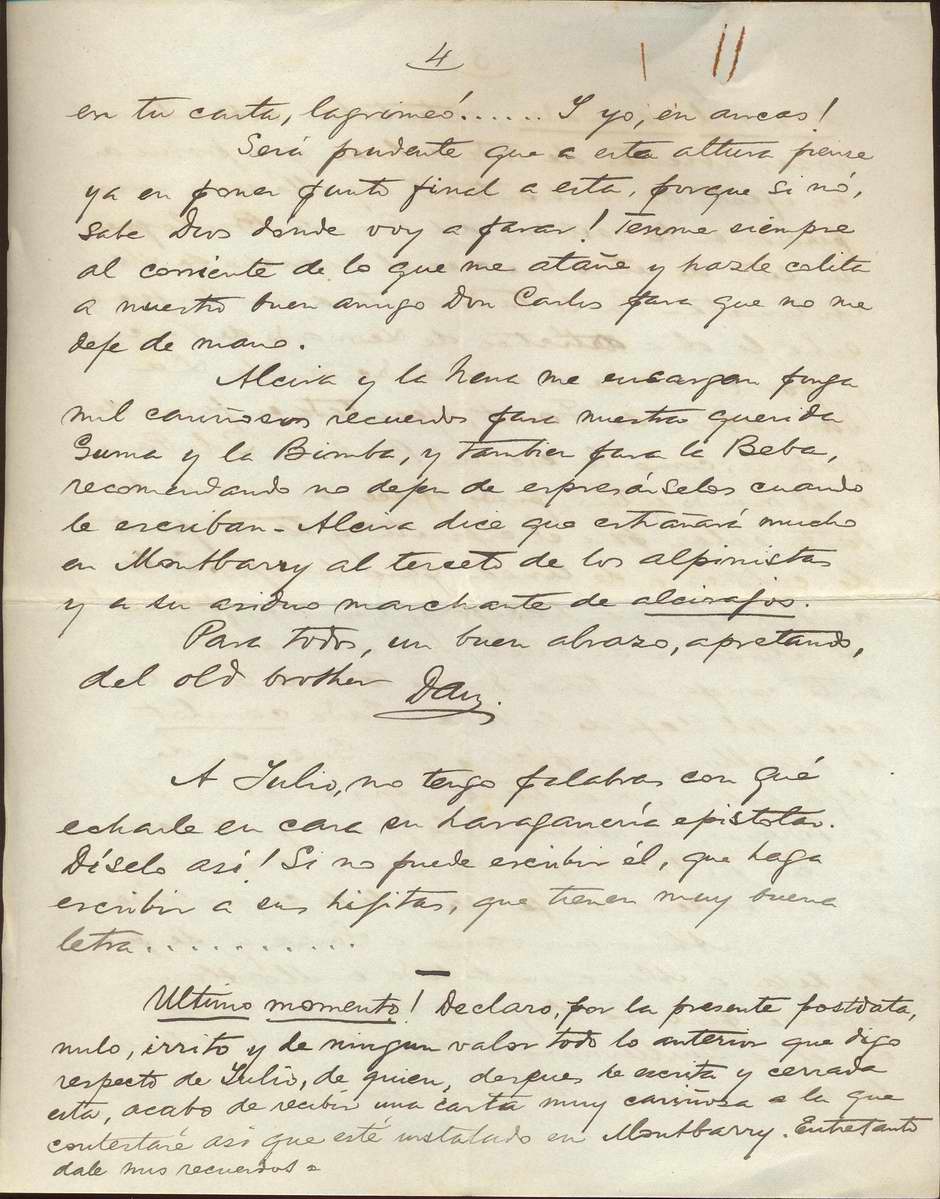 4
en tu carta, lagrimeó...... I yo, en ancas!
Será prudente que a esta altura piense
ya en poner punto final a esta, porque si nó,
sabe Dios dónde voy a parar! Tenme siempre
al corriente de lo que me atañe y hazle colita
a nuestro buen amigo Don Carlos para que no me
deje de mano.
Alcira y la Nena me encargan ponga
mil cariñosos recuerdos para nuestra querida
Guma y la Bimba, y tambien para la Beba,
recomendando no dejen de espresárselos cuando
le escriban - Alcira dice que estrañará mucho
en Montbarry al terceto de los alpinistas
y a su asiduo marchante de alcirajos.
Para todos, un buen abrazo, apretando,
del old brother Dan.
A Julio, no tengo palabras con qué
echarle en cara su haraganería epistolar.
Díselo así! Si no puede escribir él, que haga
escribir a sus hijitas, que tienen muy buena
letra...........
Ultimo momento! Declaro, por la presente postdata,
nulo, írrito y de ningun valor todo lo anterior que digo
respecto de Julio, de quien, despues de escrita y cerrada
esta, acabo de recibir una carta muy cariñosa a la que
contestaré asi que esté instalado en Montbarry. Entretanto
dale mis recuerdos =